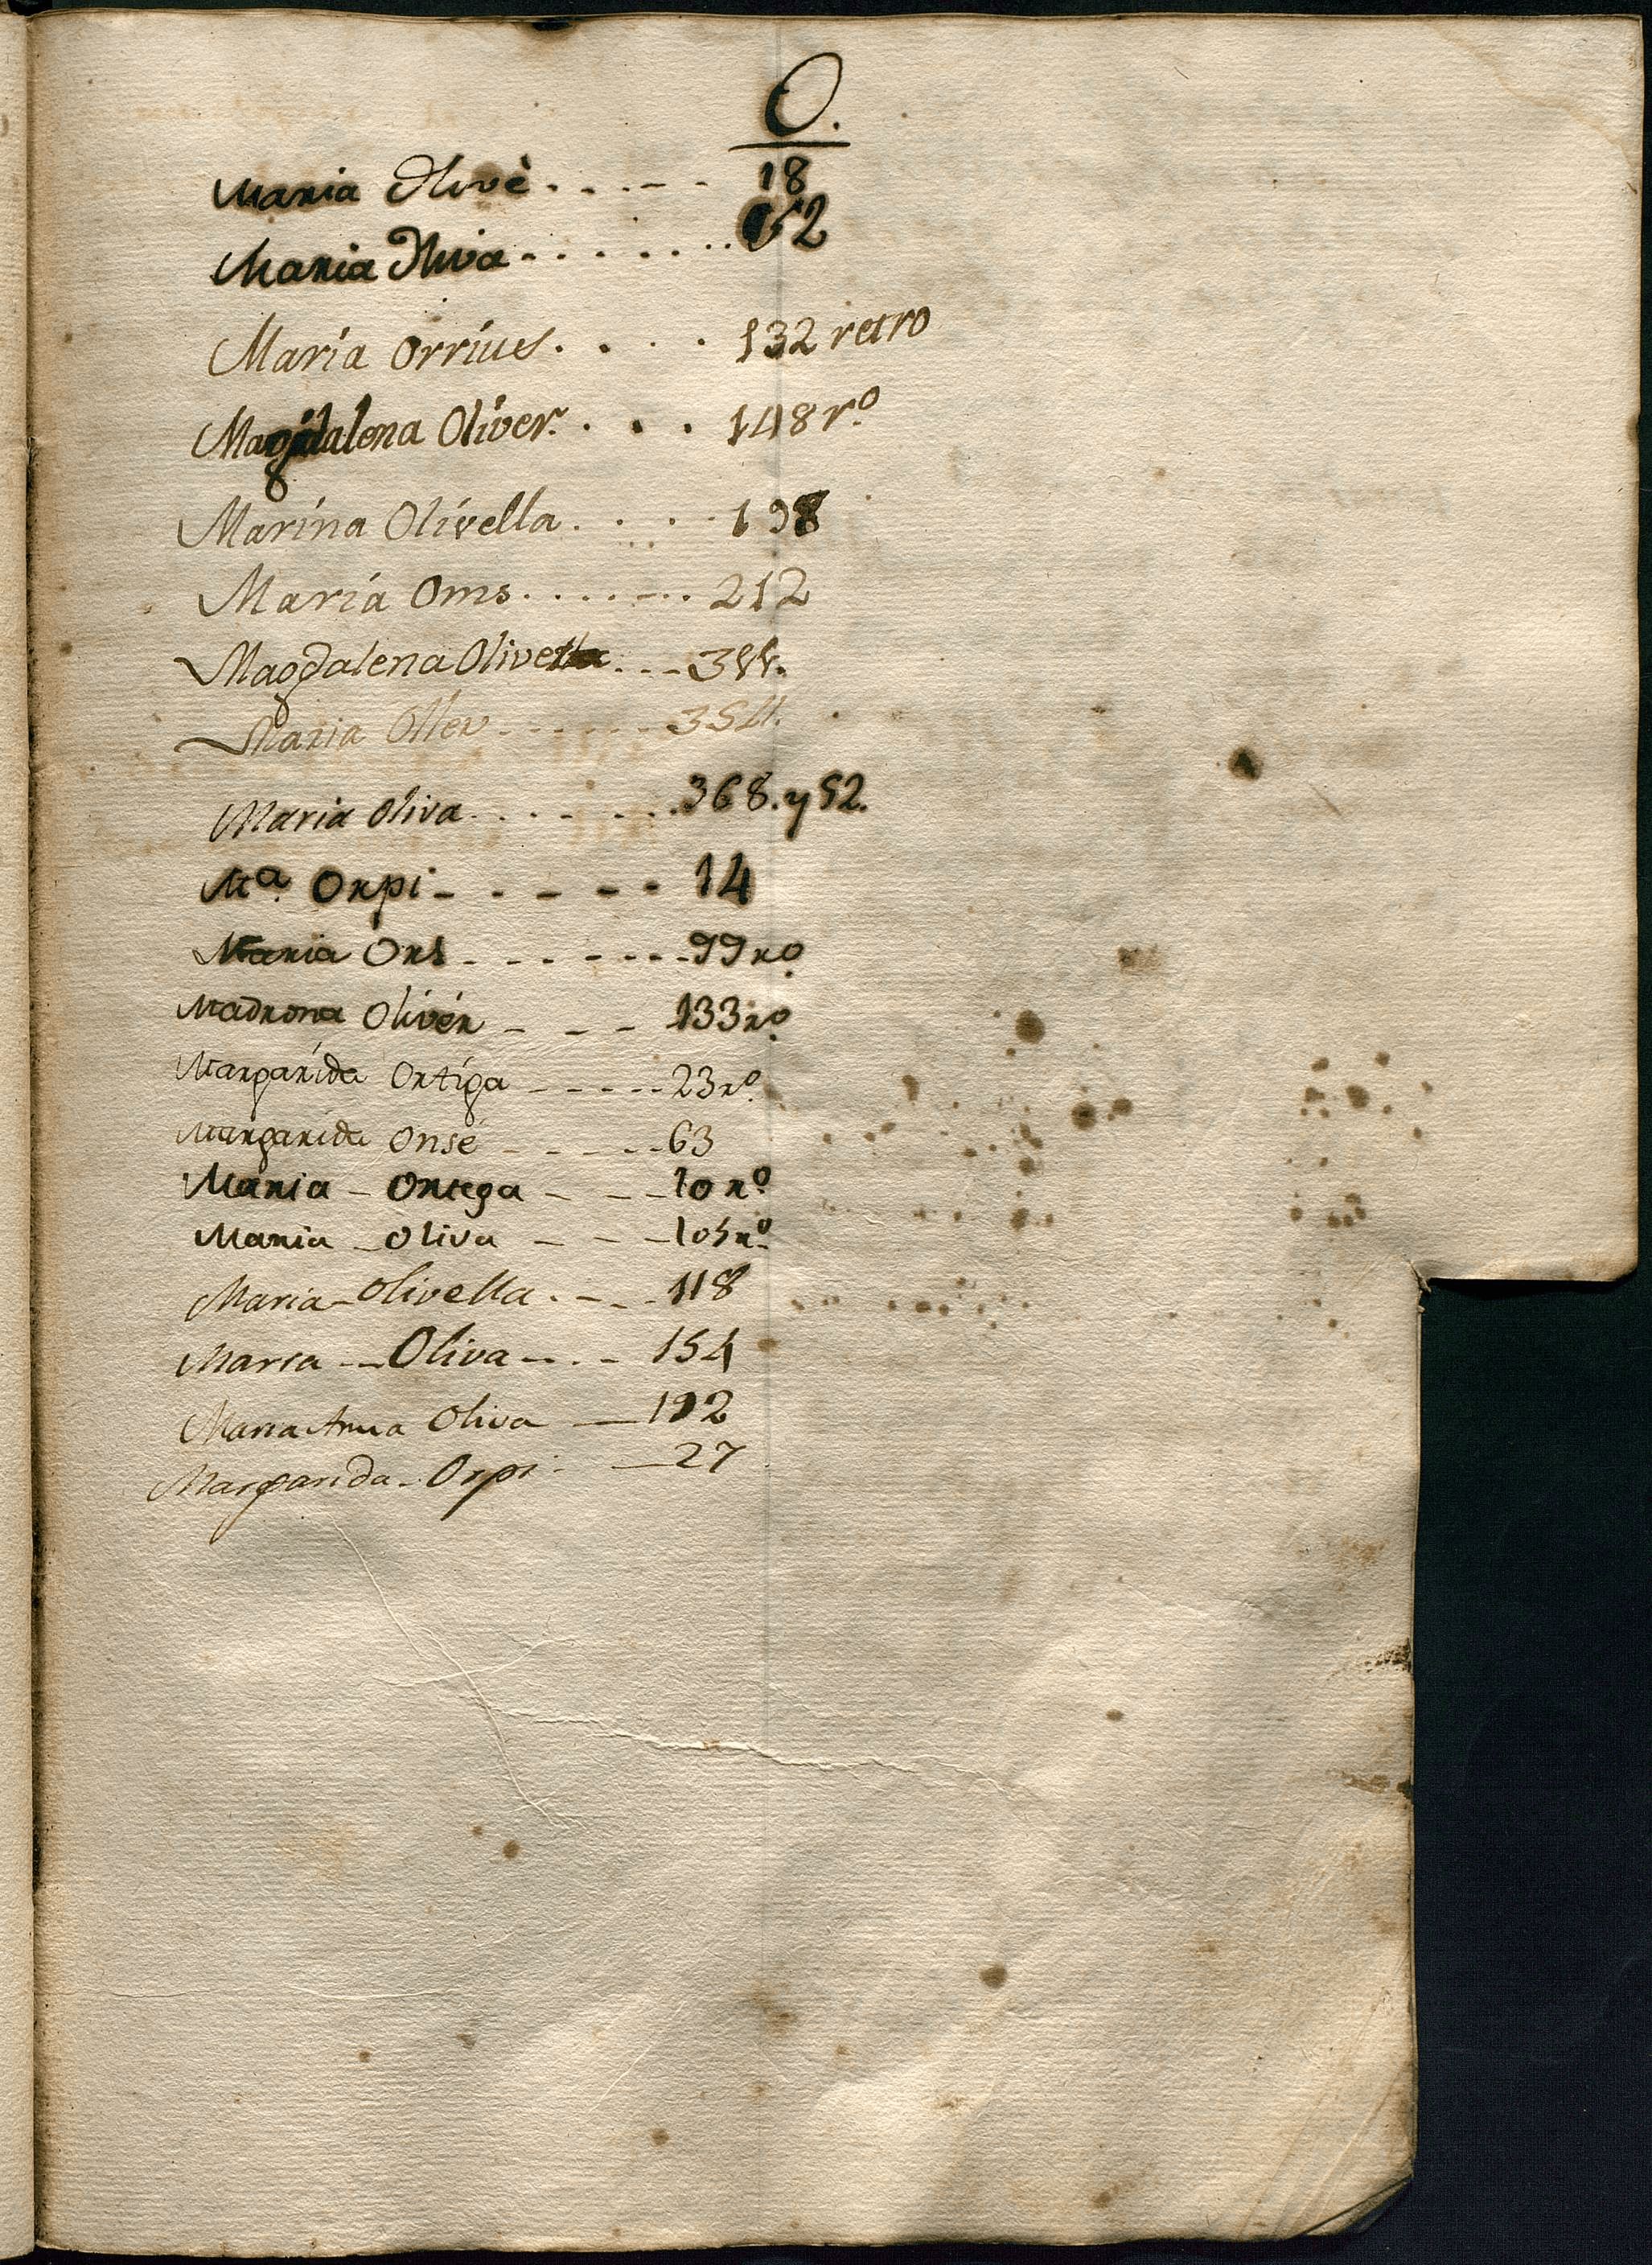 O.
Maria Olivè . . . - - 18
Maria Oliva - . . . . . . . 52
María Orríues . . . . 132 retro
Magdalena Olíver . . . 148 rº
Marína Olívella . . . . 198
María Oms . . . . . - . . 212
Magdalena Olivella . . - - 344.
Maria Oller - . . . . . - 354.
Maria Oliva . . . . - . - . . 368. y 52.
Mª Orpi - - - - - - 14
Maria Ors - - - - - - - 99 rº
Madrona Olivér - - - 133 rº
Margarída Ortíga - - - - - 23 rº
Margarida Orsé - - - - - 63
Maria - Ortega - - - 10 rº
Maria - Oliva - - - 105 rº
Maria - Olivella . - . - 118
Maria - - Oliva - . . - 154
Maria Anna Oliva — 192
Margarida - Orpi - — 27